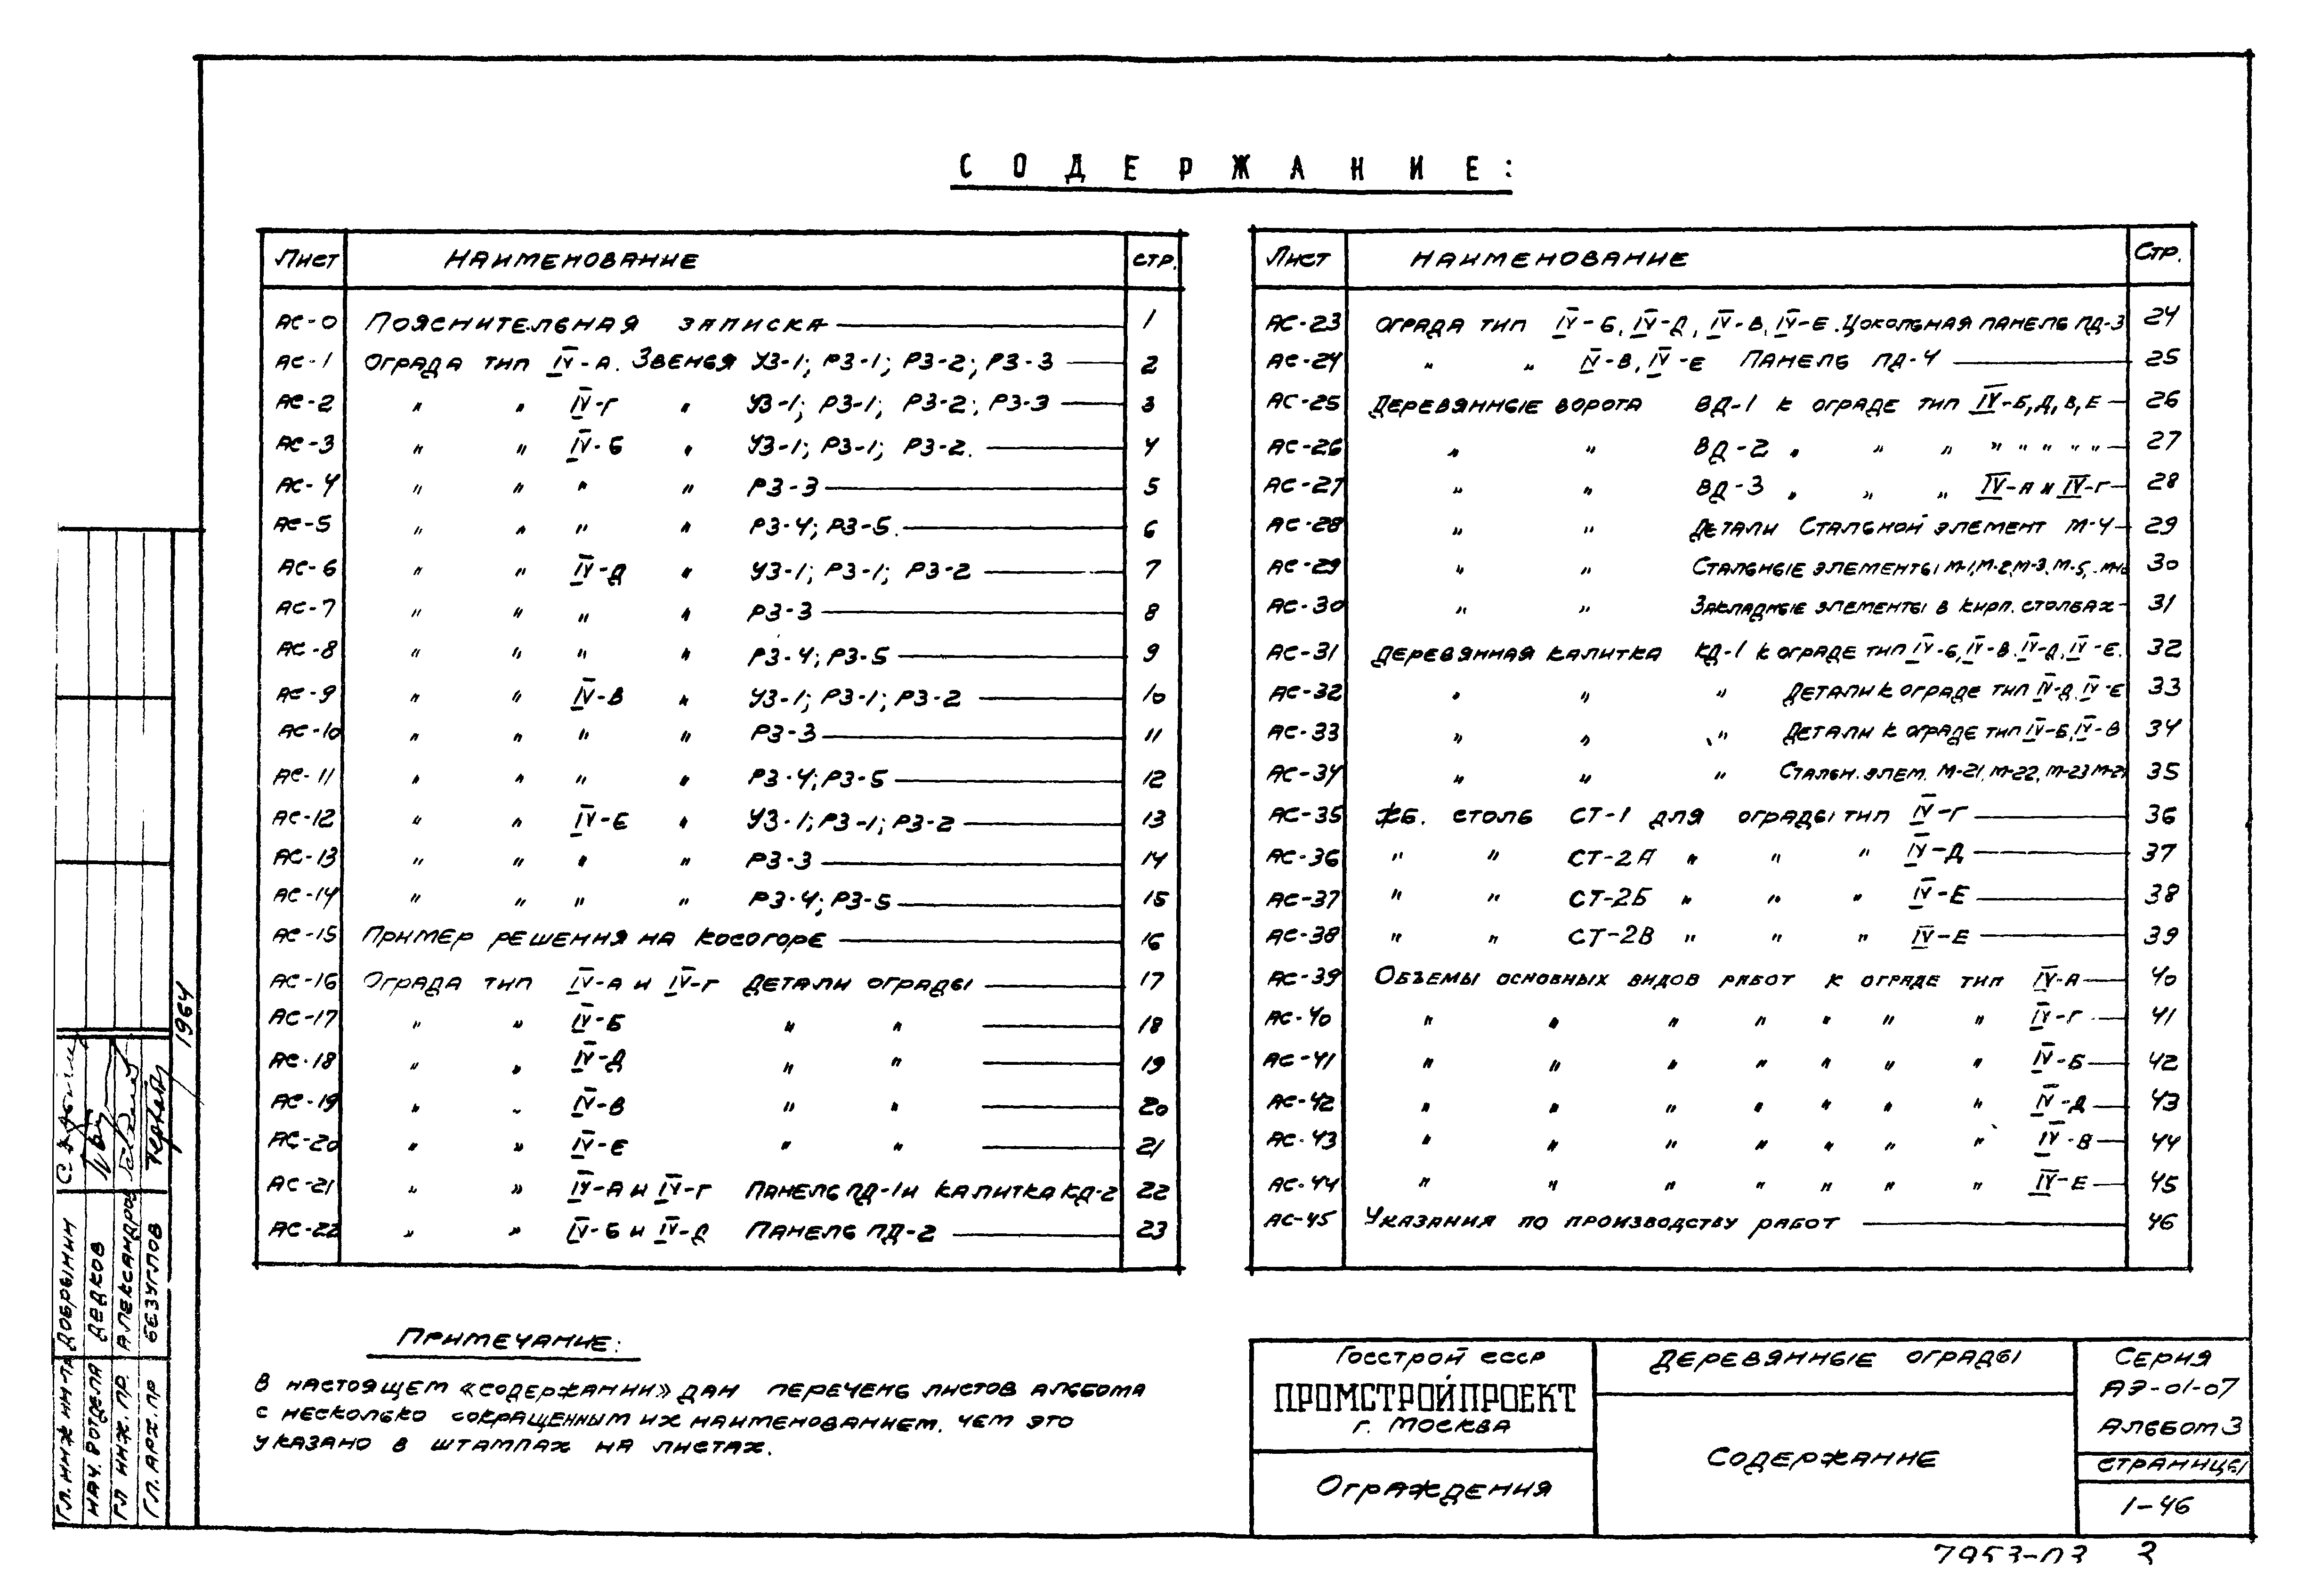 СОДЕРЖАНИЕ:
Лист НАИМЕНОВАНИЕ СТР.
АС-0 Пояснительная записка 1
АС-1 Ограда тип IV-А. Звенья УЗ-1; РЗ-1; РЗ-2; РЗ-3 2
АС-2 " " IV-Г " УЗ-1; РЗ-1; РЗ-2; РЗ-3 3
АС-3 " " IV-Б " УЗ-1; РЗ-1; РЗ-2. 4
АС-4 " " " " РЗ-3 5
АС-5 " " " " РЗ-4; РЗ-5. 6
АС-6 " " IV-Д " УЗ-1; РЗ-1; РЗ-2 7
АС-7 " " " " РЗ-3 8
АС-8 " " " " РЗ-4; РЗ-5 9
АС-9 " " IV-В " УЗ-1; РЗ-1; РЗ-2 10
АС-10 " " " " РЗ-3 11
АС-11 " " " " РЗ-4; РЗ-5 12
АС-12 " " IV-Е " УЗ-1; РЗ-1; РЗ-2 13
АС-13 " " " " РЗ-3 14
АС-14 " " " " РЗ-4; РЗ-5 15
АС-15 Пример решения на косогоре 16
АС-16 Ограда тип IV-А и IV-Г Детали ограды 17
АС-17 " " IV-Б " " 18
АС-18 " " IV-Д " " 19
АС-19 " " IV-В " " 20
АС-20 " " IV-Е " " 21
АС-21 " " IV-А и IV-Г Панель ПД-1 и калитка КД-2 22
АС-22 " " IV-Б и IV-Д Панель ПД-2 23
Лист НАИМЕНОВАНИЕ Стр.
АС-23 Ограда тип IV-Б, IV-Д, IV-В, IV-Е. Цокольная панель ПД-3 24
АС-24 " " IV-В, IV-Е Панель ПД-4 25
АС-25 Деревянные ворота ВД-1 к ограде тип IV-Б, Д, В, Е 26
АС-26 " " ВД-2 " " " " " " " " 27
АС-27 " " ВД-3 " " " IV-А и IV-Г 28
АС-28 " " Детали Стальной элемент М-4 29
АС-29 " " Стальные элементы М-1, М-2, М-3, М-5, 30
АС-30 " " Закладные элементы в кирп. столбах 31
АС-31 Деревянная калитка КД-1 к ограде тип IV-Б, IV-В. IV-Д, IV-Е. 32
АС-32 " " " Детали к ограде тип IV-Д, IV-Е 33
АС-33 " " " Детали к ограде тип IV-Б, IV-В 34
АС-34 " " " Стальн. элем. М-21, М-22, М-23 35
АС-35 ЖБ. столб СТ-1 для ограды тип IV-Г 36
АС-36 " " СТ-2А " " " IV-Д 37
АС-37 " " СТ-2Б " " " IV-Е 38
АС-38 " " СТ-2В " " " IV-Е 39
АС-39 Объемы основных видов работ к ограде тип IV-А 40
АС-40 " " " " " " " IV-Г 41
АС-41 " " " " " " " IV-Б 42
АС-42 " " " " " " " IV-Д 43
АС-43 " " " " " " " IV-В 44
АС-44 " " " " " " " IV-Е 45
АС-45 Указания по производству работ 46
Примечание:
В настоящем «содержании» дан перечень листов альбома
с несколько сокращенным их наименованием, чем это
указано в штампах на листах.
Госстрой СССР
ПРОМСТРОЙПРОЕКТ
г. Москва
Ограждения
Деревянные ограды
Содержание
Серия
АЭ-01-07
Альбом 3
Страницы
1-46
7953-03 3
Гл. инж ин-та Добрынин
Нач. отдела Дедков
Гл инж. пр. Александров
Гл. арх. пр Безуглов
1964